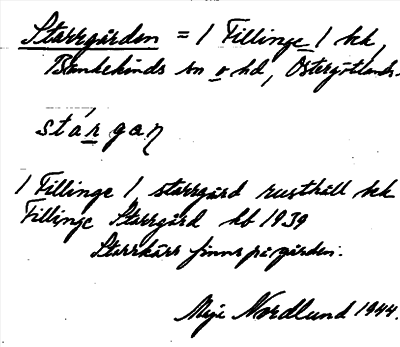 Starrgården = / Fillinge / hd,
Bankekinds sn o hd, Östergötlands.
stárgan
/ Fillinge / starrgård rusthåll hd
Fillinge Starrgård kb 1939
Starrkärr finns på gården.
Nordlund 1944.